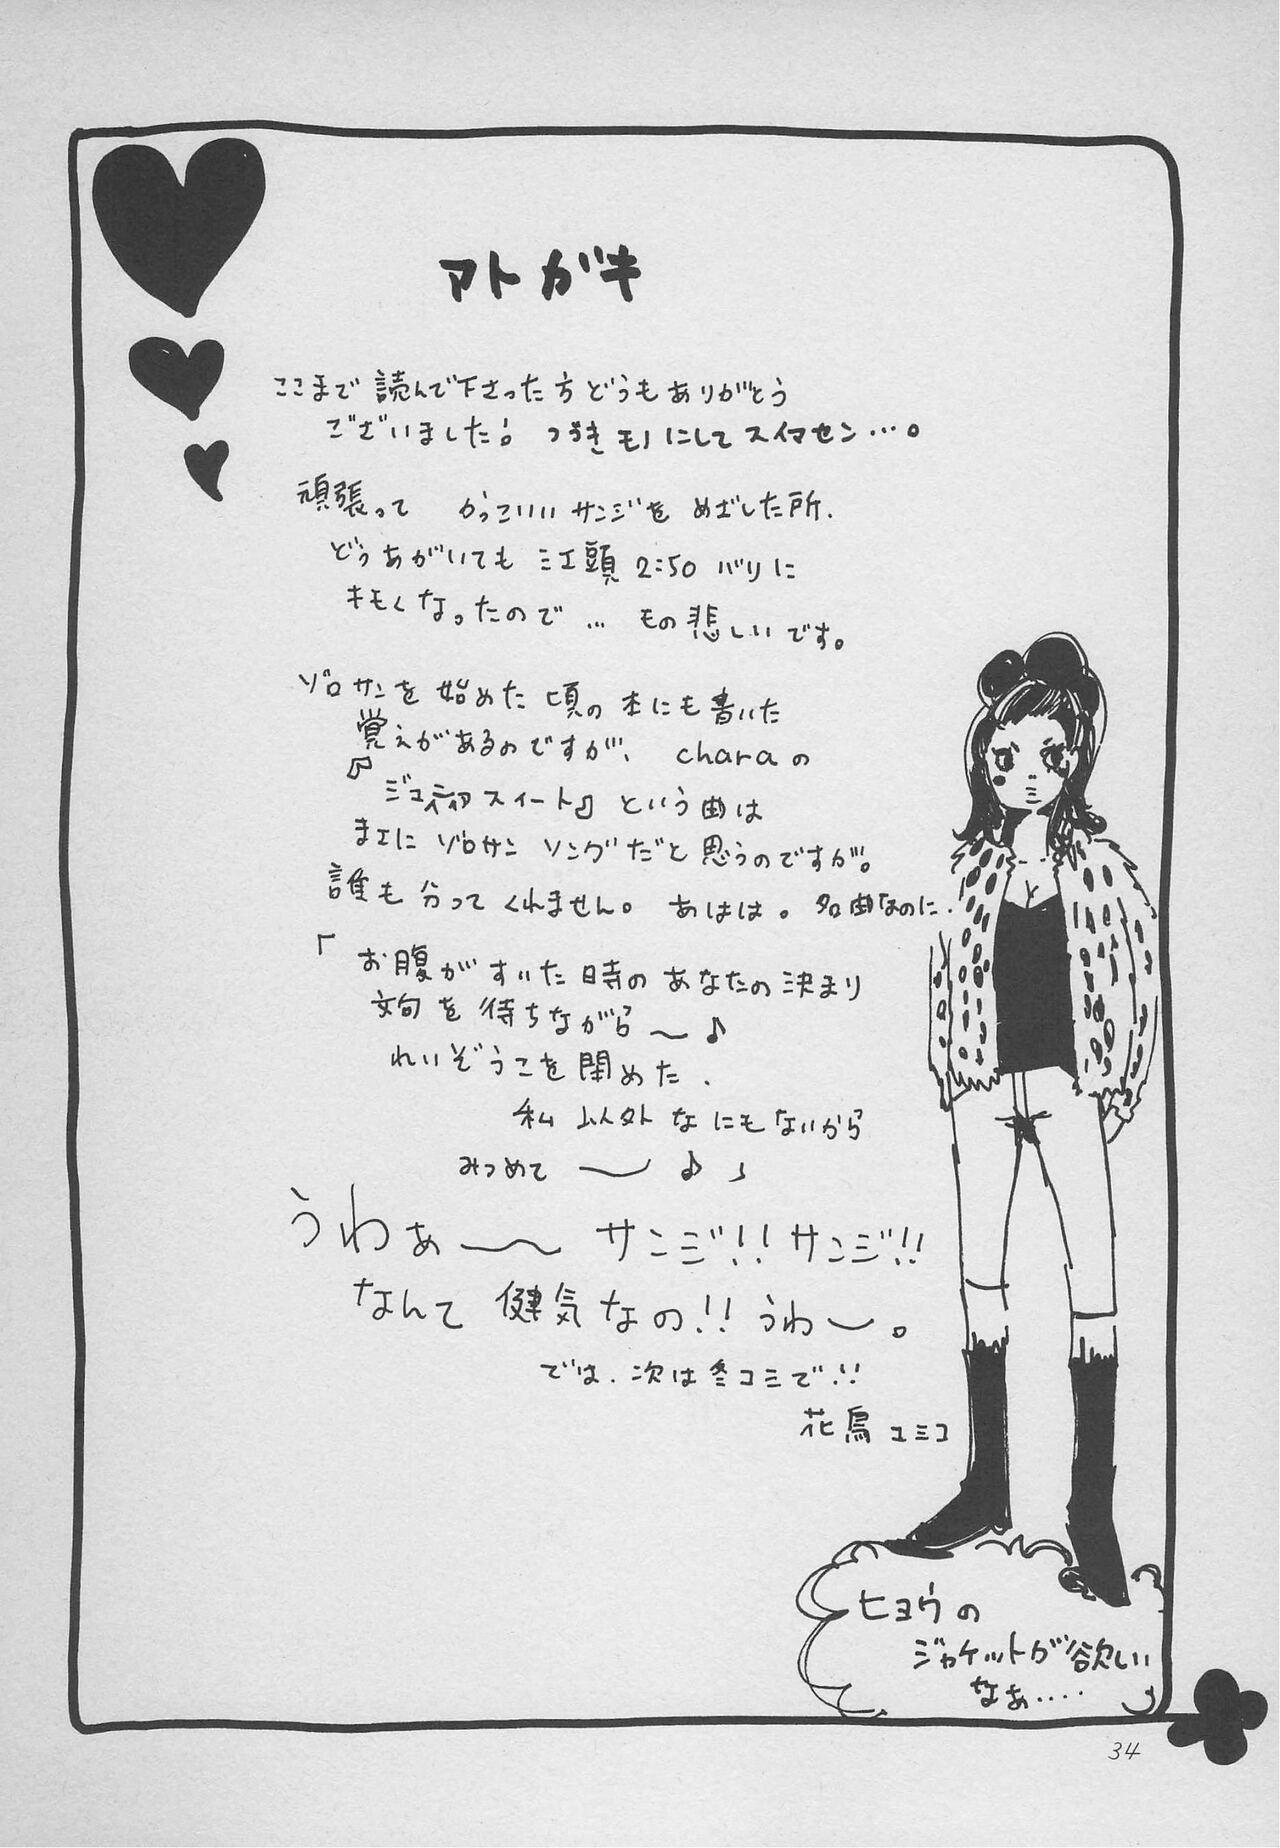 アトガキ
ここまで読んで下さった方どうもありがとう
ございました! つづきモノにしてスイマセン…。
頑張って かっこいいサンジを めざした所、
どうあがいても 江頭 2:50 バリに
キモくなったので … もの悲しいです。
ゾロサンを始めた頃の本にも書いた
覚えがあるのですが、charaの
『ジュニアスイート』という曲は
まさに ゾロサン ソングだと思うのですが。
誰も分ってくれません。あはは。名曲なのに.
「お腹がすいた時のあなたの決まり
文句を待ちながら〜♪
れいぞうこを閉めた.
私 以外なにもないから
みつめて 〜♪」
うわぁ〜 サンジ!!サンジ!!
なんて 健気なの!! うわ〜。
では、次は冬コミで!!
花鳥ユミコ
ヒョウの
ジャケットが欲しい
なぁ‥‥
34